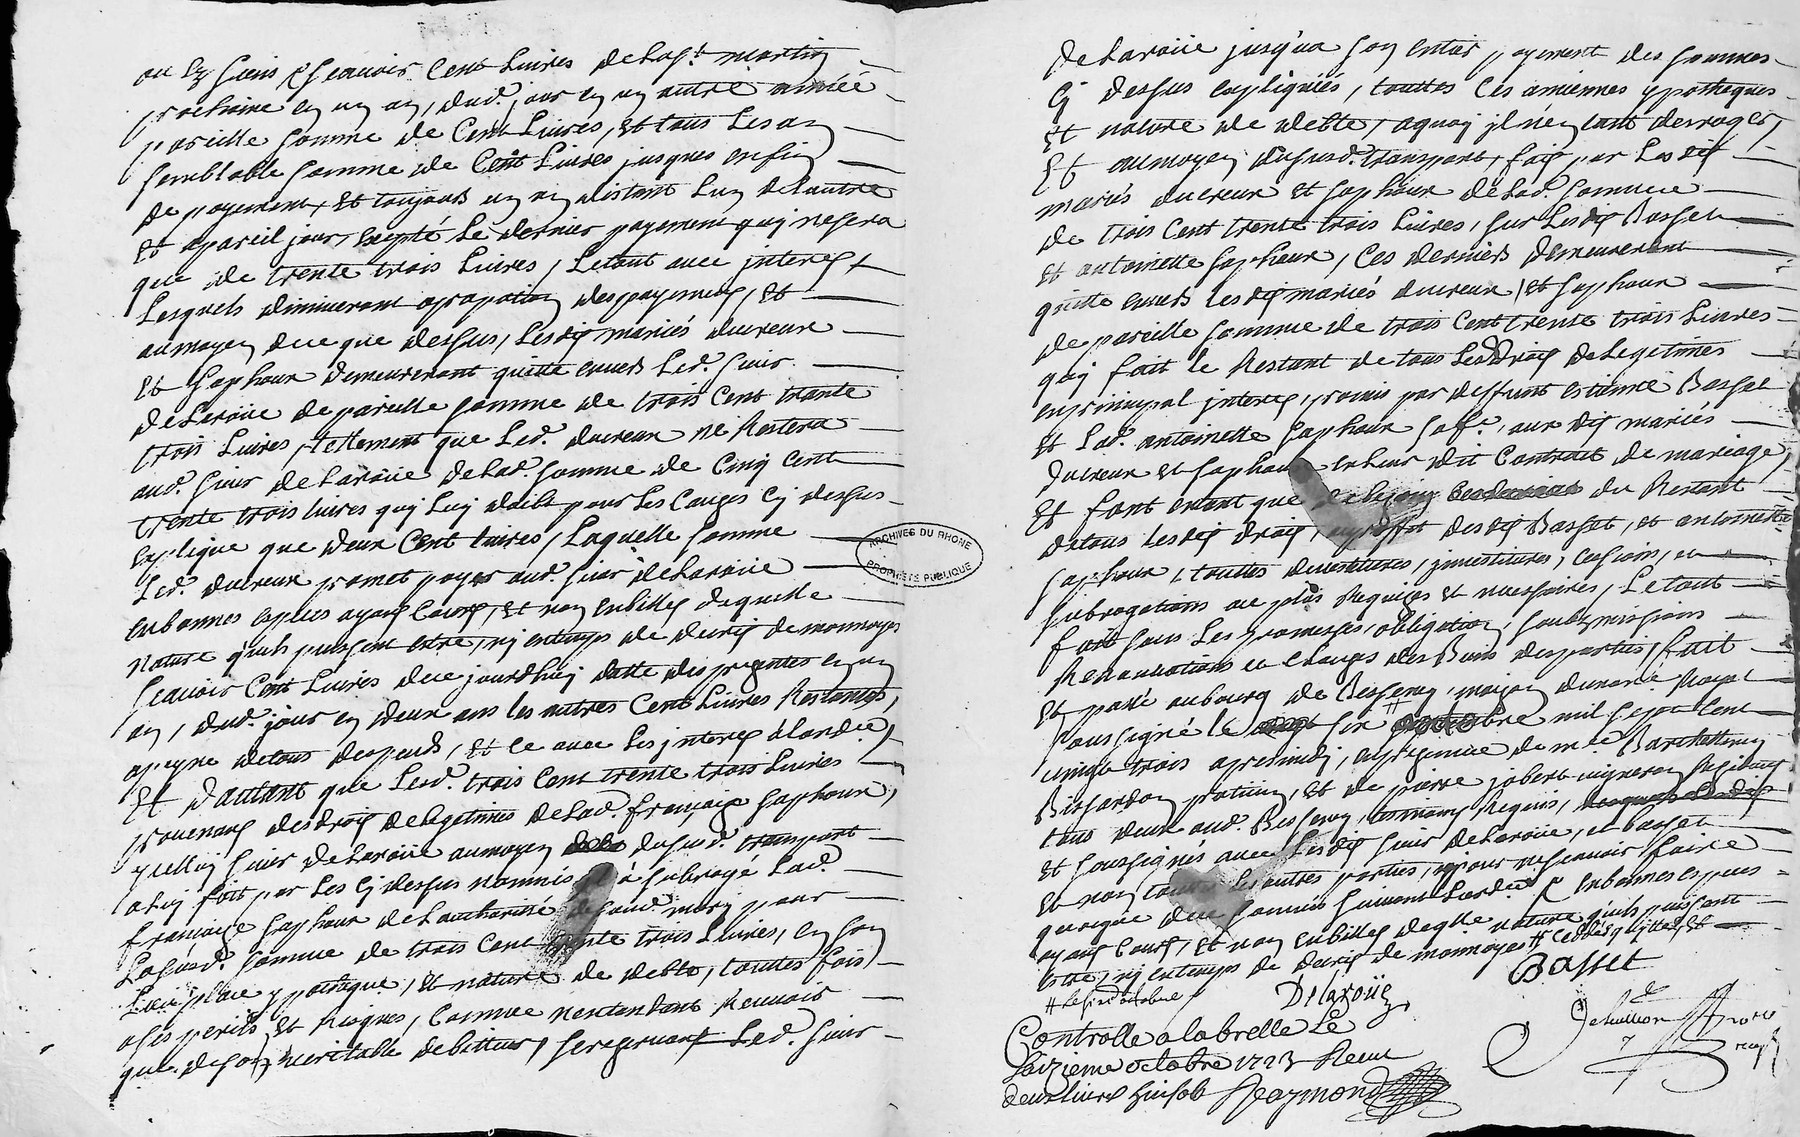 ou es siens scavoir cent Livres de la st martin
prochaine en un an, dud. jour en un autre année
pareille somme de Cent Livres, et tous les ans
semblable somme de Cent Livres jusques enfin
de payement, et toujours un an distant l'un de lautre
et apareil jour, excepté le dernier payement quy nesera
que de trente trois Livres, Letout avec jnterest
Lesquels diminueront aproportion des payemens, et
aumoyen duce que dessus, Lesdis mariés ducreux
et saphoux demeureront quitte envers Led. sieur
de Laroüe de pareille somme de trois Cent trante
trois Livres, tellement que Led. ducreux ne Restera
aud. sieur de Laroüe de Lad. somme de Cinq cent
trente trois livres quy Luy doibt pour les Causes cy dessus
expliqué que deux Cent livres, Laquelle somme
Led. ducreux promet payer aud. sieur de Laroüe
enbonnes especes ayans Cours, et non enbillets dequelle
nature quils puissent estre, ny entemps de decris demonnoyes
scavoir Cent Livres duce jourdhuy datte des presentes en un
an, dud. jour en deux ans les autres Cent Livres Restantes,
apeyne detous despends, et ce avec les jnterest alord.e,
Et d'autant que Lesd. trois Cent trente trois Livres
provenans desdrois delegitimes de Lad. françoise saphoux,
yceluy sieur de Laroüe aumoyen dususd. transport
aluy fait par les cy dessus nommés a subrogé Lad.
françoise saphoux de Lauthorité desond. mary pour
Lasusd. somme de trois Cent trente trois Livres, en son
Lieu place ypoteque, et nature de debte, touttes fois
ases perils et Risques, Comme nentendant Recevoir
que deson veritable debitteur, sereservant Led. sieur
de Laroüe jusqua son entier payement des sommes
Cy dessus expliquées, touttes Ces anciennes ypotheques
et nature de debte, aquoy jl n'entend derroger,
Et aumoyen dususd. transport, fais par Lesdis
mariés ducreux et saphoux de Lad. somme
de trois Cent trente trois Livres, sur Lesdis Basset
et antoinette saphoux, Ces derniers demeureront
quitte envers lesdis mariés ducreux et saphoux
de pareille somme de trois Cent trente trois Livres
quy fait le Restant de tous Lesdrois de Legitimes
enprincipal jnterest, promis par deffunt estienne Basset
et Lad. antoinette saphoux safe., aux dis mariés
ducreux et saphoux en leur dit Contrait de mariage,
Et font evant que du Restant
detous lesdis drois, auproffit desdis Basset, et antoinette
saphoux, touttes devestitures, jnvestitures, cessions, et
subrogations au plus Requises et necessaires, Letout
fait sous Les promesses, obligation, soubzmissions
Renonciations et Clauses des Biens desparties, fait
et passé aubourg de Bessenay, maison dunore Royal
soussigné le six mil sept cent
vingt trois apresmidy, enpresence de mre Barthellemy
Bissardon, et de pierre jobert vigneron residans
tous deux aud. Bessenay, tesmoins Requis,
et soussignés avec Lesdis sieur de Laroüe, et basset
et non Les autres parties, pour nescavoir faire
quoyque de ce sommés suivant Lord.e # enbonnes especes
ayans Cours, et non enbillets dequelle nature quils puissent
estre, ny entemps de decris de monnoyes # ceddés quittés, et
# Le sixe octobre
Delaroüe
Basset
Controllé a labrelle Le
saizieme octobre 1723 Receu
deux livres huisols Reymond